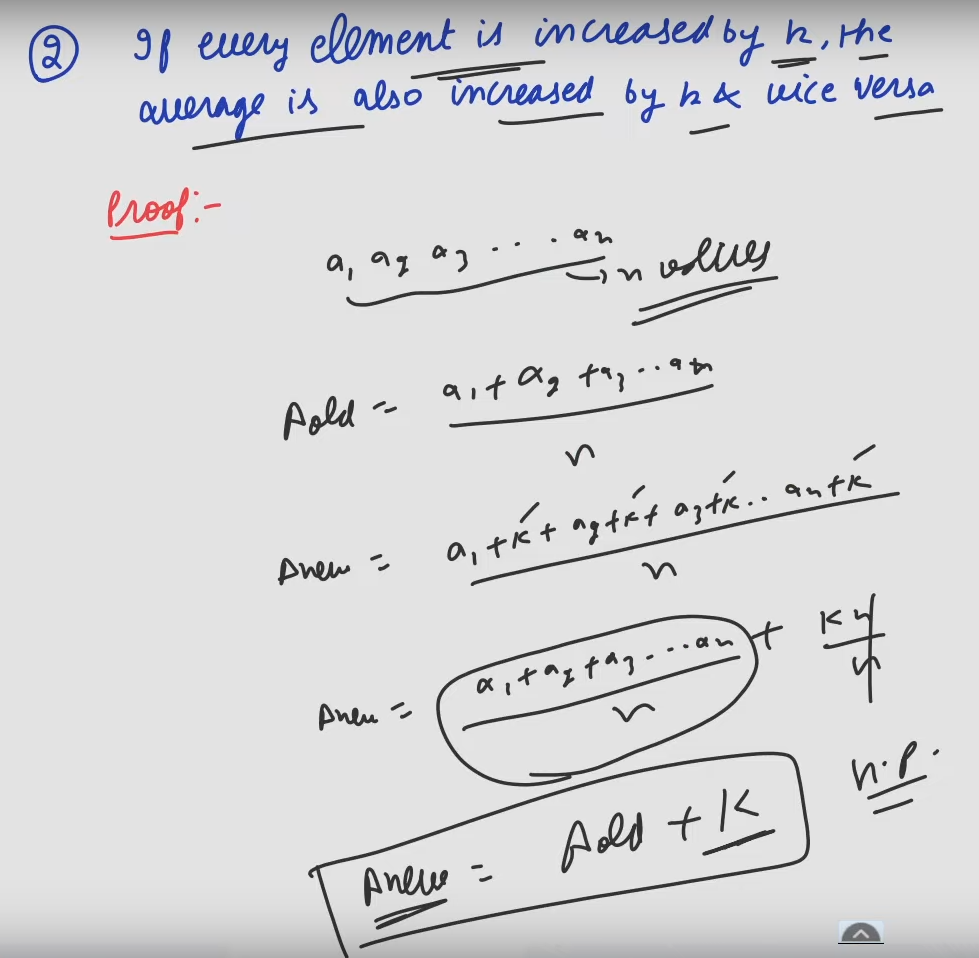 ② If every element is increased by k, the
average is also increased by k & vice versa
Proof:-
a₁ a₂ a₃ .... aₙ
→ n values
Aold = a₁ + a₂ + a₃ ... aₙ
n
Anew = a₁ + K + a₂ + K + a₃ + K .. aₙ + K
n
Anew = a₁ + a₂ + a₃ ... aₙ + Kn
n n
H.P.
Anew = Aold + K